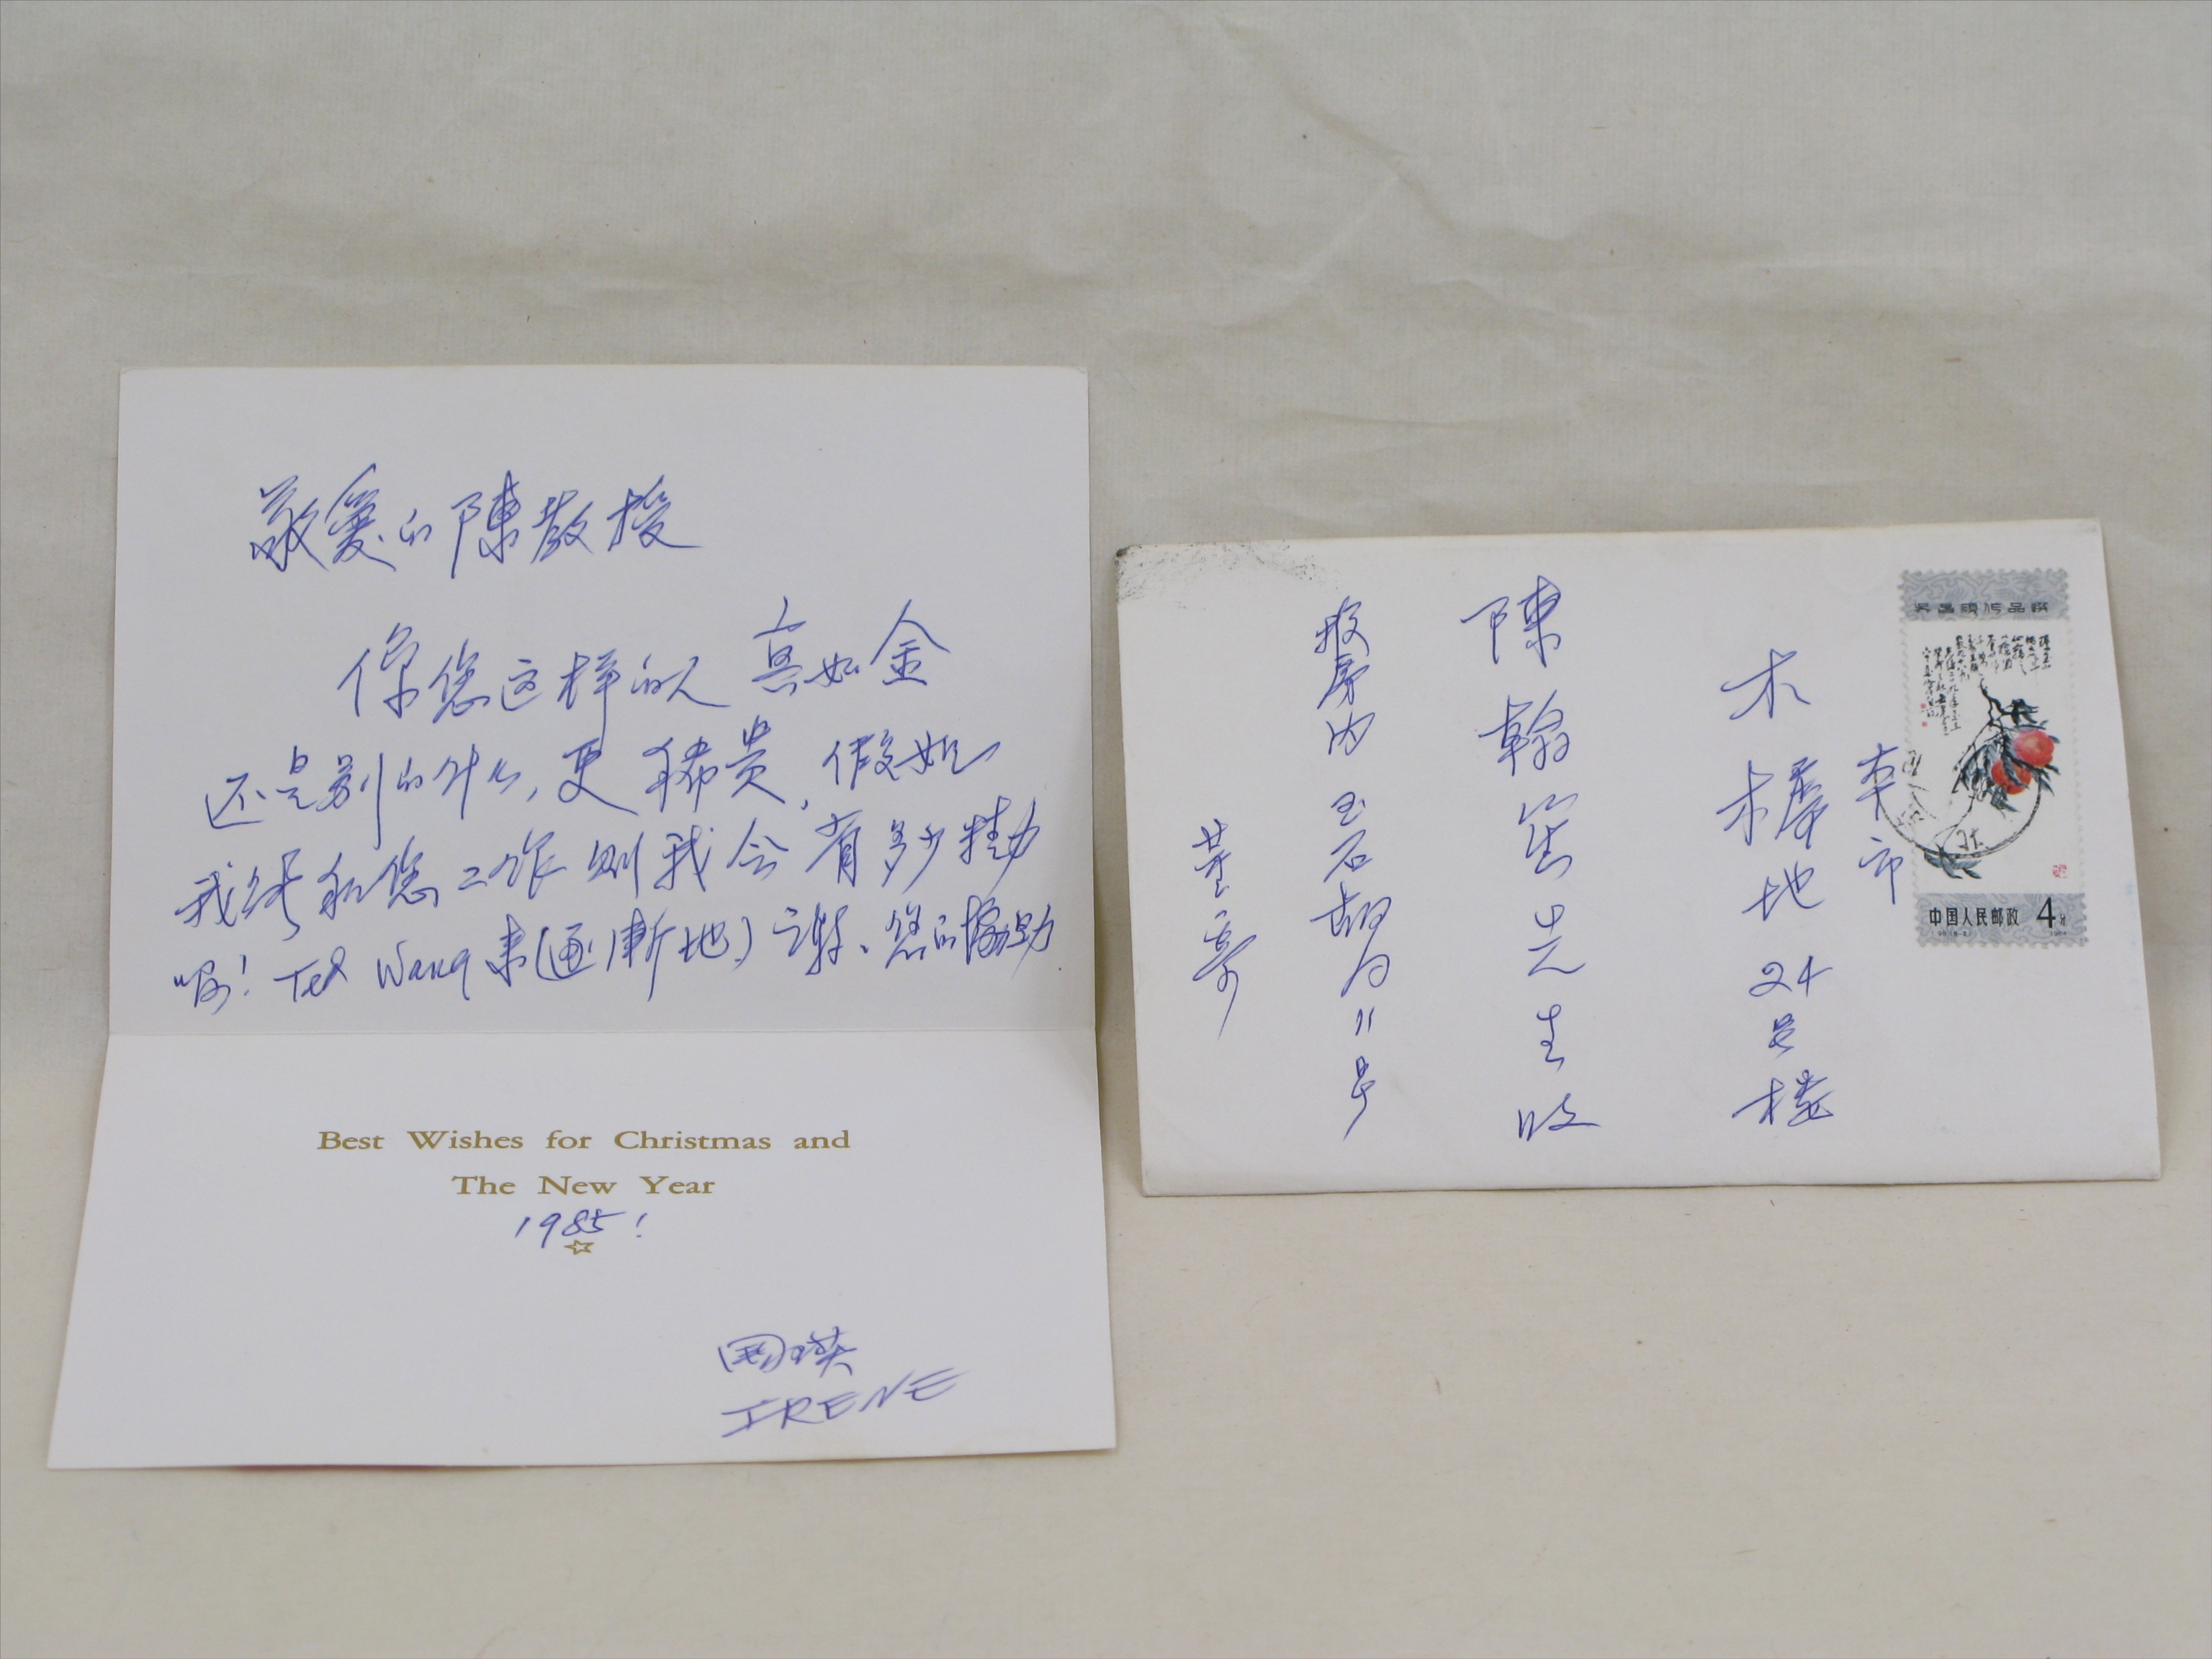 敬爱的陳教授
像您这样的人真如金
还是别的什么,更稀贵,假如
我能和您工作则我会有多少推动
呀! Ted Wang 来(逐漸地)谢、您的協助
Best Wishes for Christmas and
The New Year
1985!
国瑛
IRENE
吴昌硕作品选
中国人民邮政 4分
本市
木樨地24号楼
陳翰笙先生收
石胡同11号
董寄